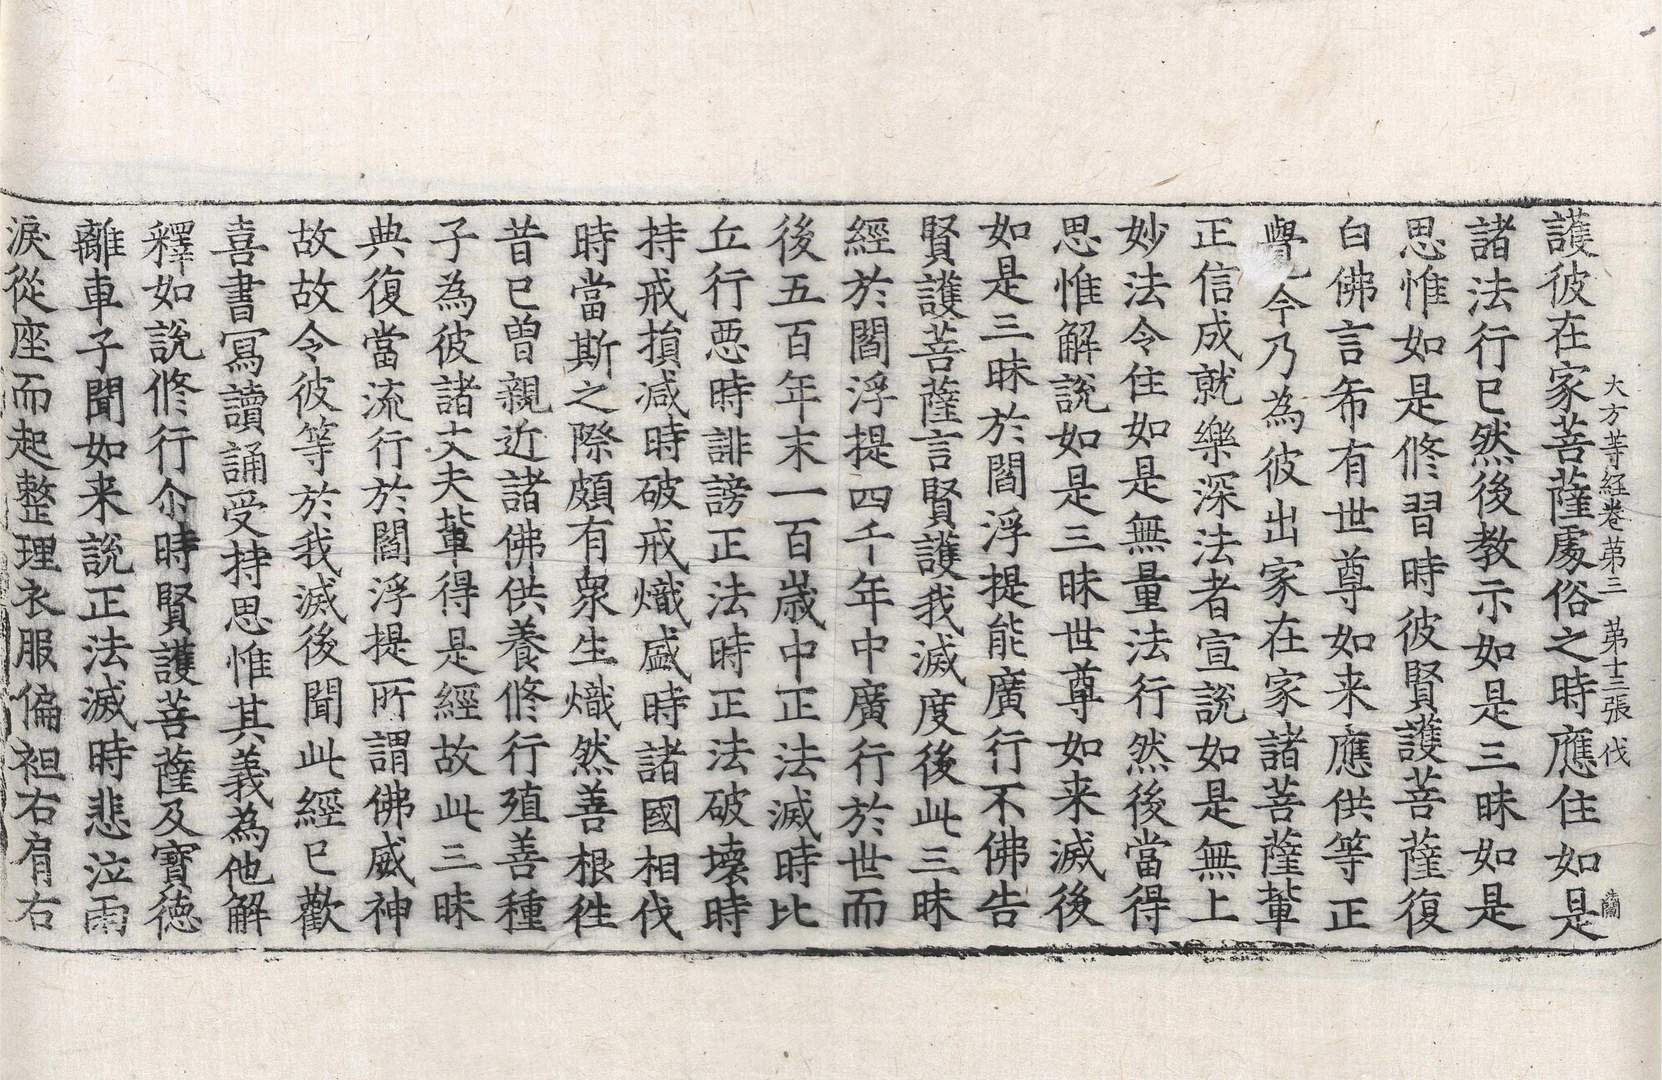 大方等経巻苐三　苐十三張　伐
護彼在家菩薩處俗之時應住如是
諸法行已然後教示如是三昧如是
思惟如是修習時彼賢護菩薩復
白佛言希有世尊如来應供等正
覺今乃為彼出家在家諸菩薩軰
正信成就樂深法者宣說如是無上
妙法令住如是無量法行然後當得
思惟解說如是三昧世尊如来滅後
如是三昧於閻浮提能廣行不佛告
賢護菩薩言賢護我滅度後此三昧
經於閻浮提四千年中廣行於世而
後五百年末一百歲中正法滅時比
丘行惡時誹謗正法時正法破壞時
持戒損减時破戒熾盛時諸國相伐
時當斯之際頗有衆生熾然善根徃
昔已曾親近諸佛供養修行殖善種
子為彼諸丈夫軰得是經故此三昧
典復當流行於閻浮提所謂佛威神
故故令彼等於我滅後聞此經已歡
喜書寫讀誦受持思惟其義為他解
釋如說修行尒時賢護菩薩及寶徳
離車子聞如来說正法滅時悲泣雨
淚從座而起整理衣服偏袒右肩右